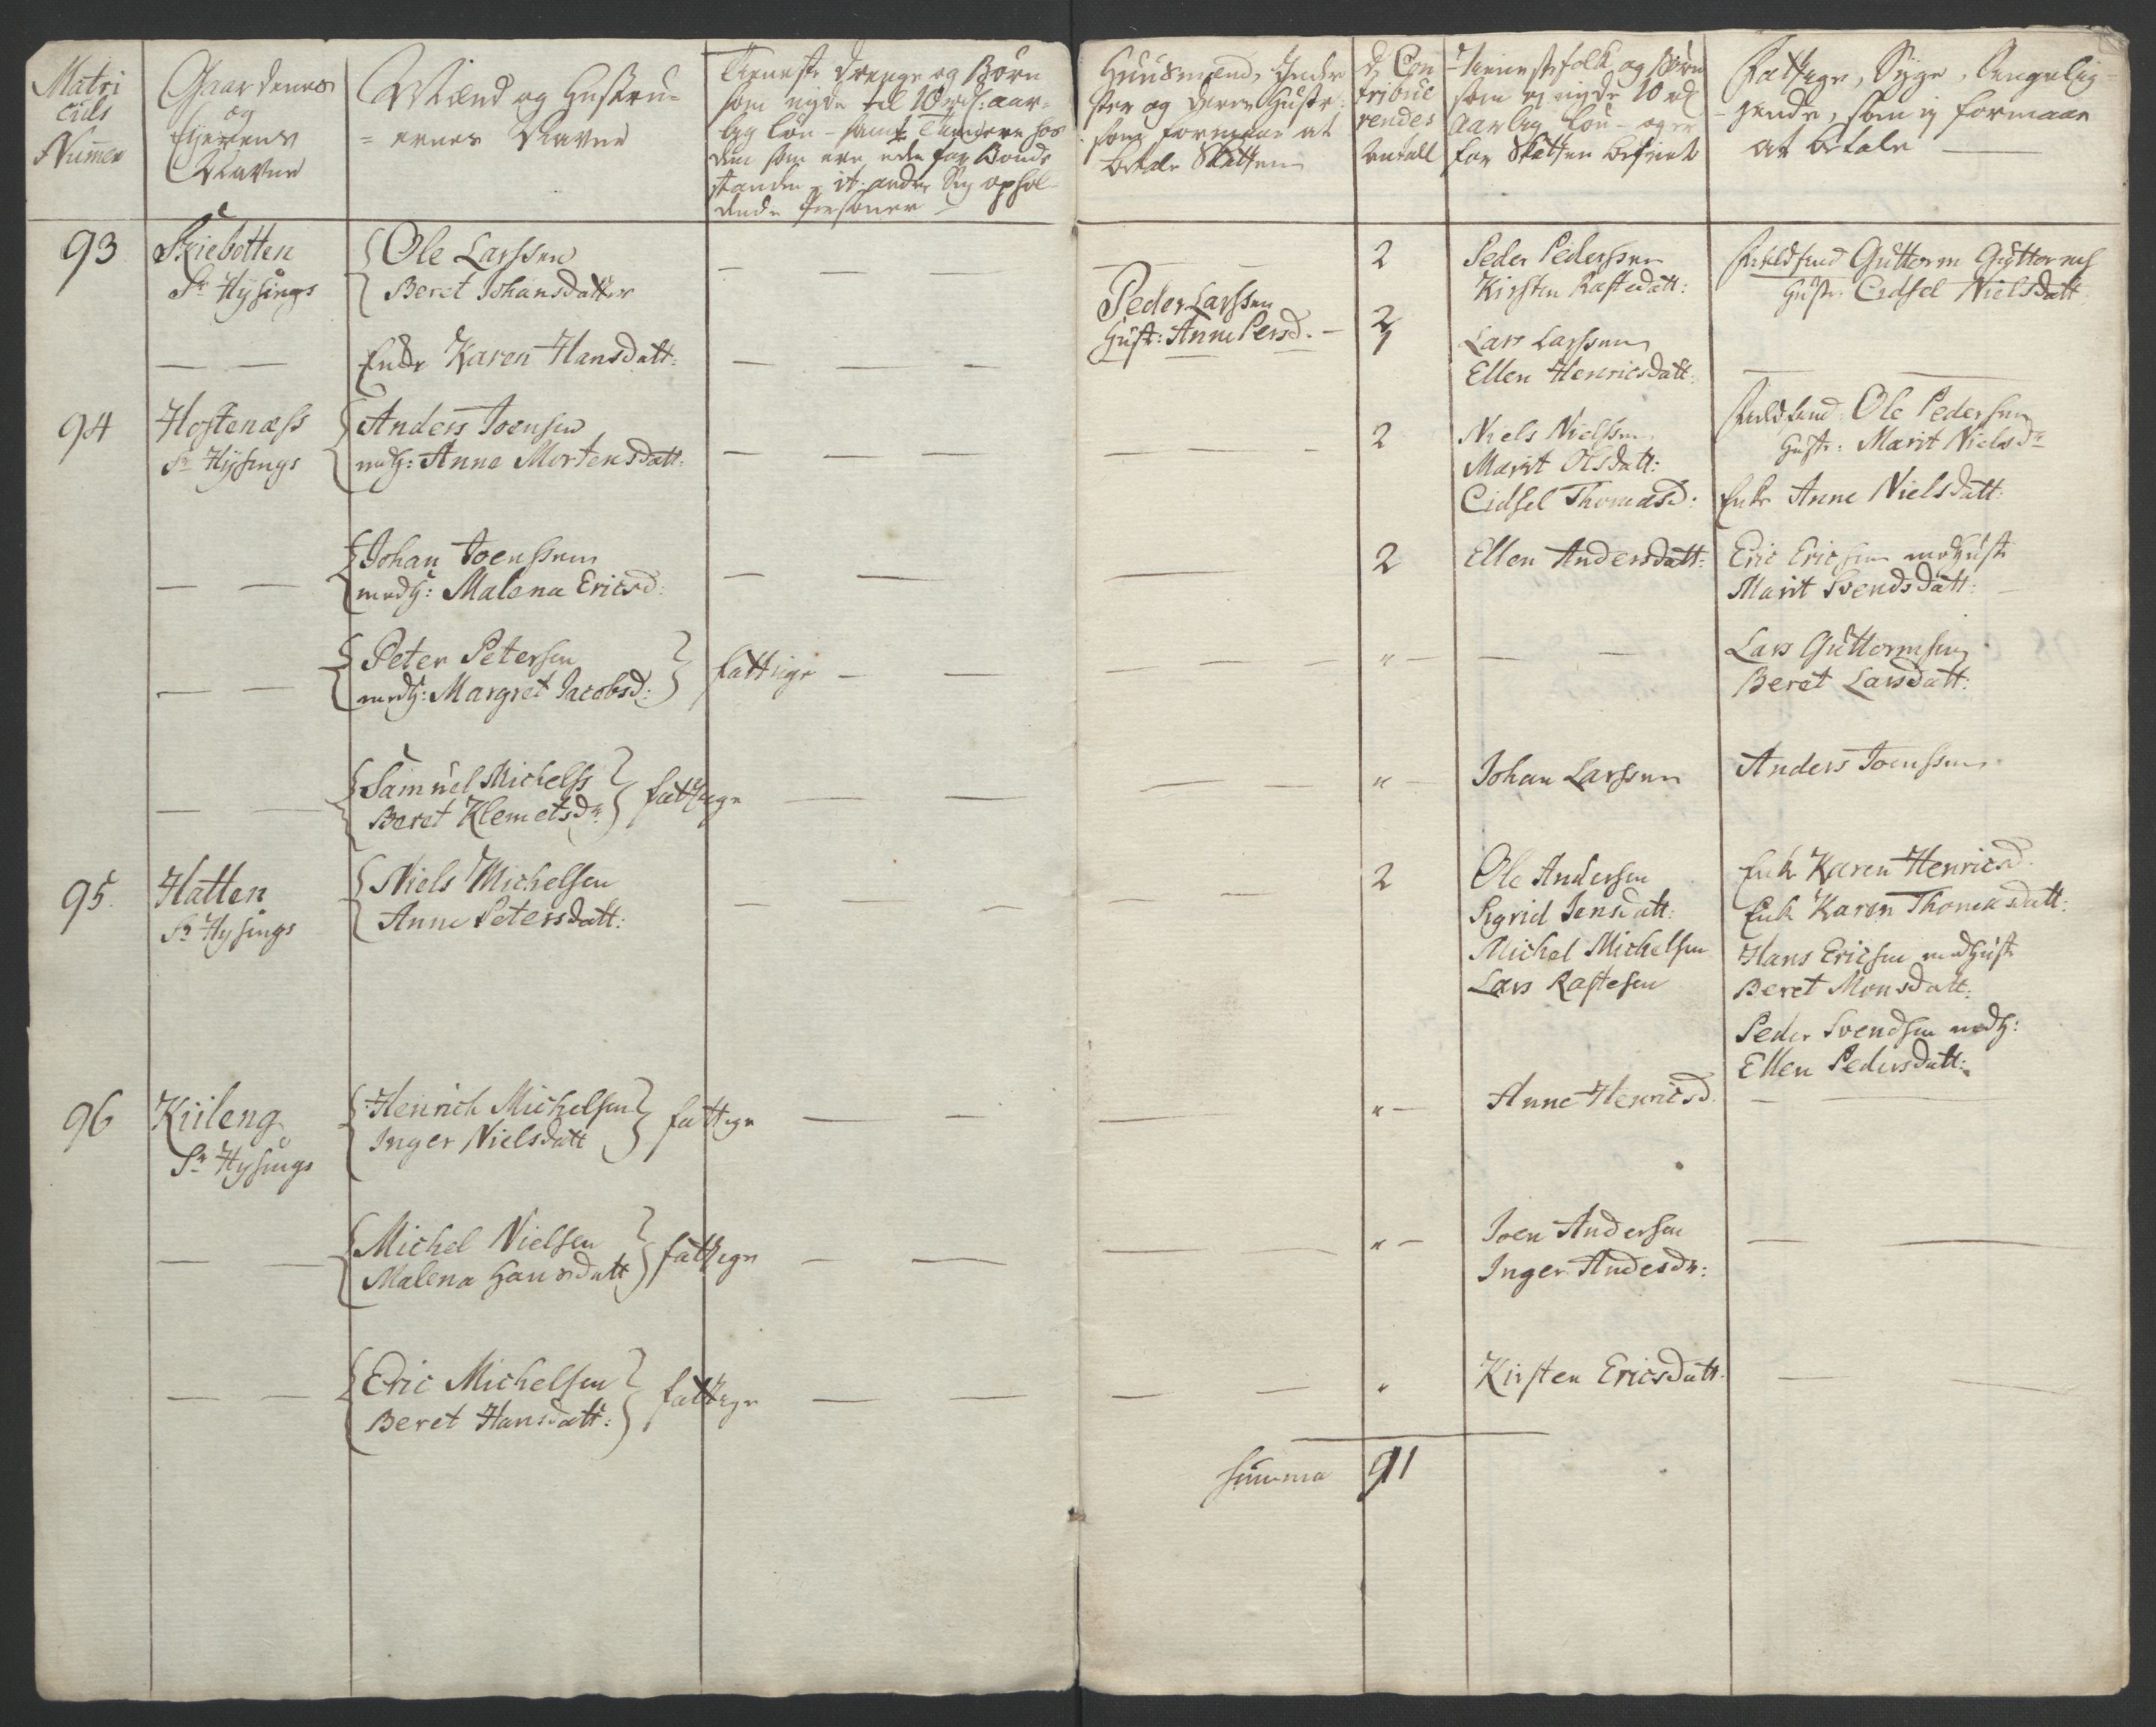 Matri
culs
Numer
Gaardenes
og
Ejerens
Navne
Mænd og Hustru=
= ernes Navne
Tieneste Drenge og Børn
som nyde til 10 rd: aar=
lig Løn - samt Tienere hos
dem som ere uden for Bonde
standen - it: andre Sig ophol=
dende Personer
Huusmænd, Inder
ster og deres Hustr:
som formaar at
betale Skatten
d Con
tribue
rendes
Antall
Tienestefolk og Børn
som ej nyde 10 rd
Aarlig Løn - og er
for Skatten befriet
Fattige, Syge, Sengelig=
gende, som ej formaar
at betale
93 Skiebotten
Sr Hysings
Ole Larssen
Beret Johansdatter
2
Peder Pederssen
Kirsten Rastedatt:
Guttorm Guttorms
Hustr: Cidsel Nielsdatt
Peder Larssen
Hust: Anne Persd. - 2
Enke Karen Hansdatt:
1
Lars Larssen
Ellen Henricsdatt:
94 Hostenæss
Sr Hysings
Anders Joensen
medh: Anne Mortensdatt:
2
Niels Nielssen
Marit Olsdatt:
Cidsel Thomasd:
Ole Pedersen
Hustr: Marit Nielsdr
Enke Anne Nielsdatt:
Johan Joenssen
medh: Malena Ericsd:
2
Ellen Andersdatt:
Eric Ericsen med Hustr
Marit Svendsdatt:
Peter Petersen
medh: Margret Jacobsd:
fattige
"
Lars Guttormsen
Beret Larsdatt:
Samuel Michelss
Beret Klemetsdr
fattige
"
Johan Larssen
Anders Joenssen
95. Hatten
Sr Hysings
Niels Michelsen
Anne Petersdatt:
2
Ole Andersen
Sigrid Jensdatt:
Michel Michelsen
Lars Rastesen
Enke Karen Henricsd.
Enk Karen Thomasdatt:
Hans Ericsen med Hustr
Beret Monsdatt:
Peder Svendsen medh:
Ellen Pedersdatt:
96 Kiileng
Sr Hysings
Henrich Michelsen
Inger Nielsdatt
fattige
"
Anne Henricsd.
Michel Nielsen
Malena Hansdatt
fattige
"
Joen Andersen
Inger Andesdr:
Eric Michelsen
Beret Hansdatt:
fattige
"
Kirsten Ericsdatt.
Summa 91